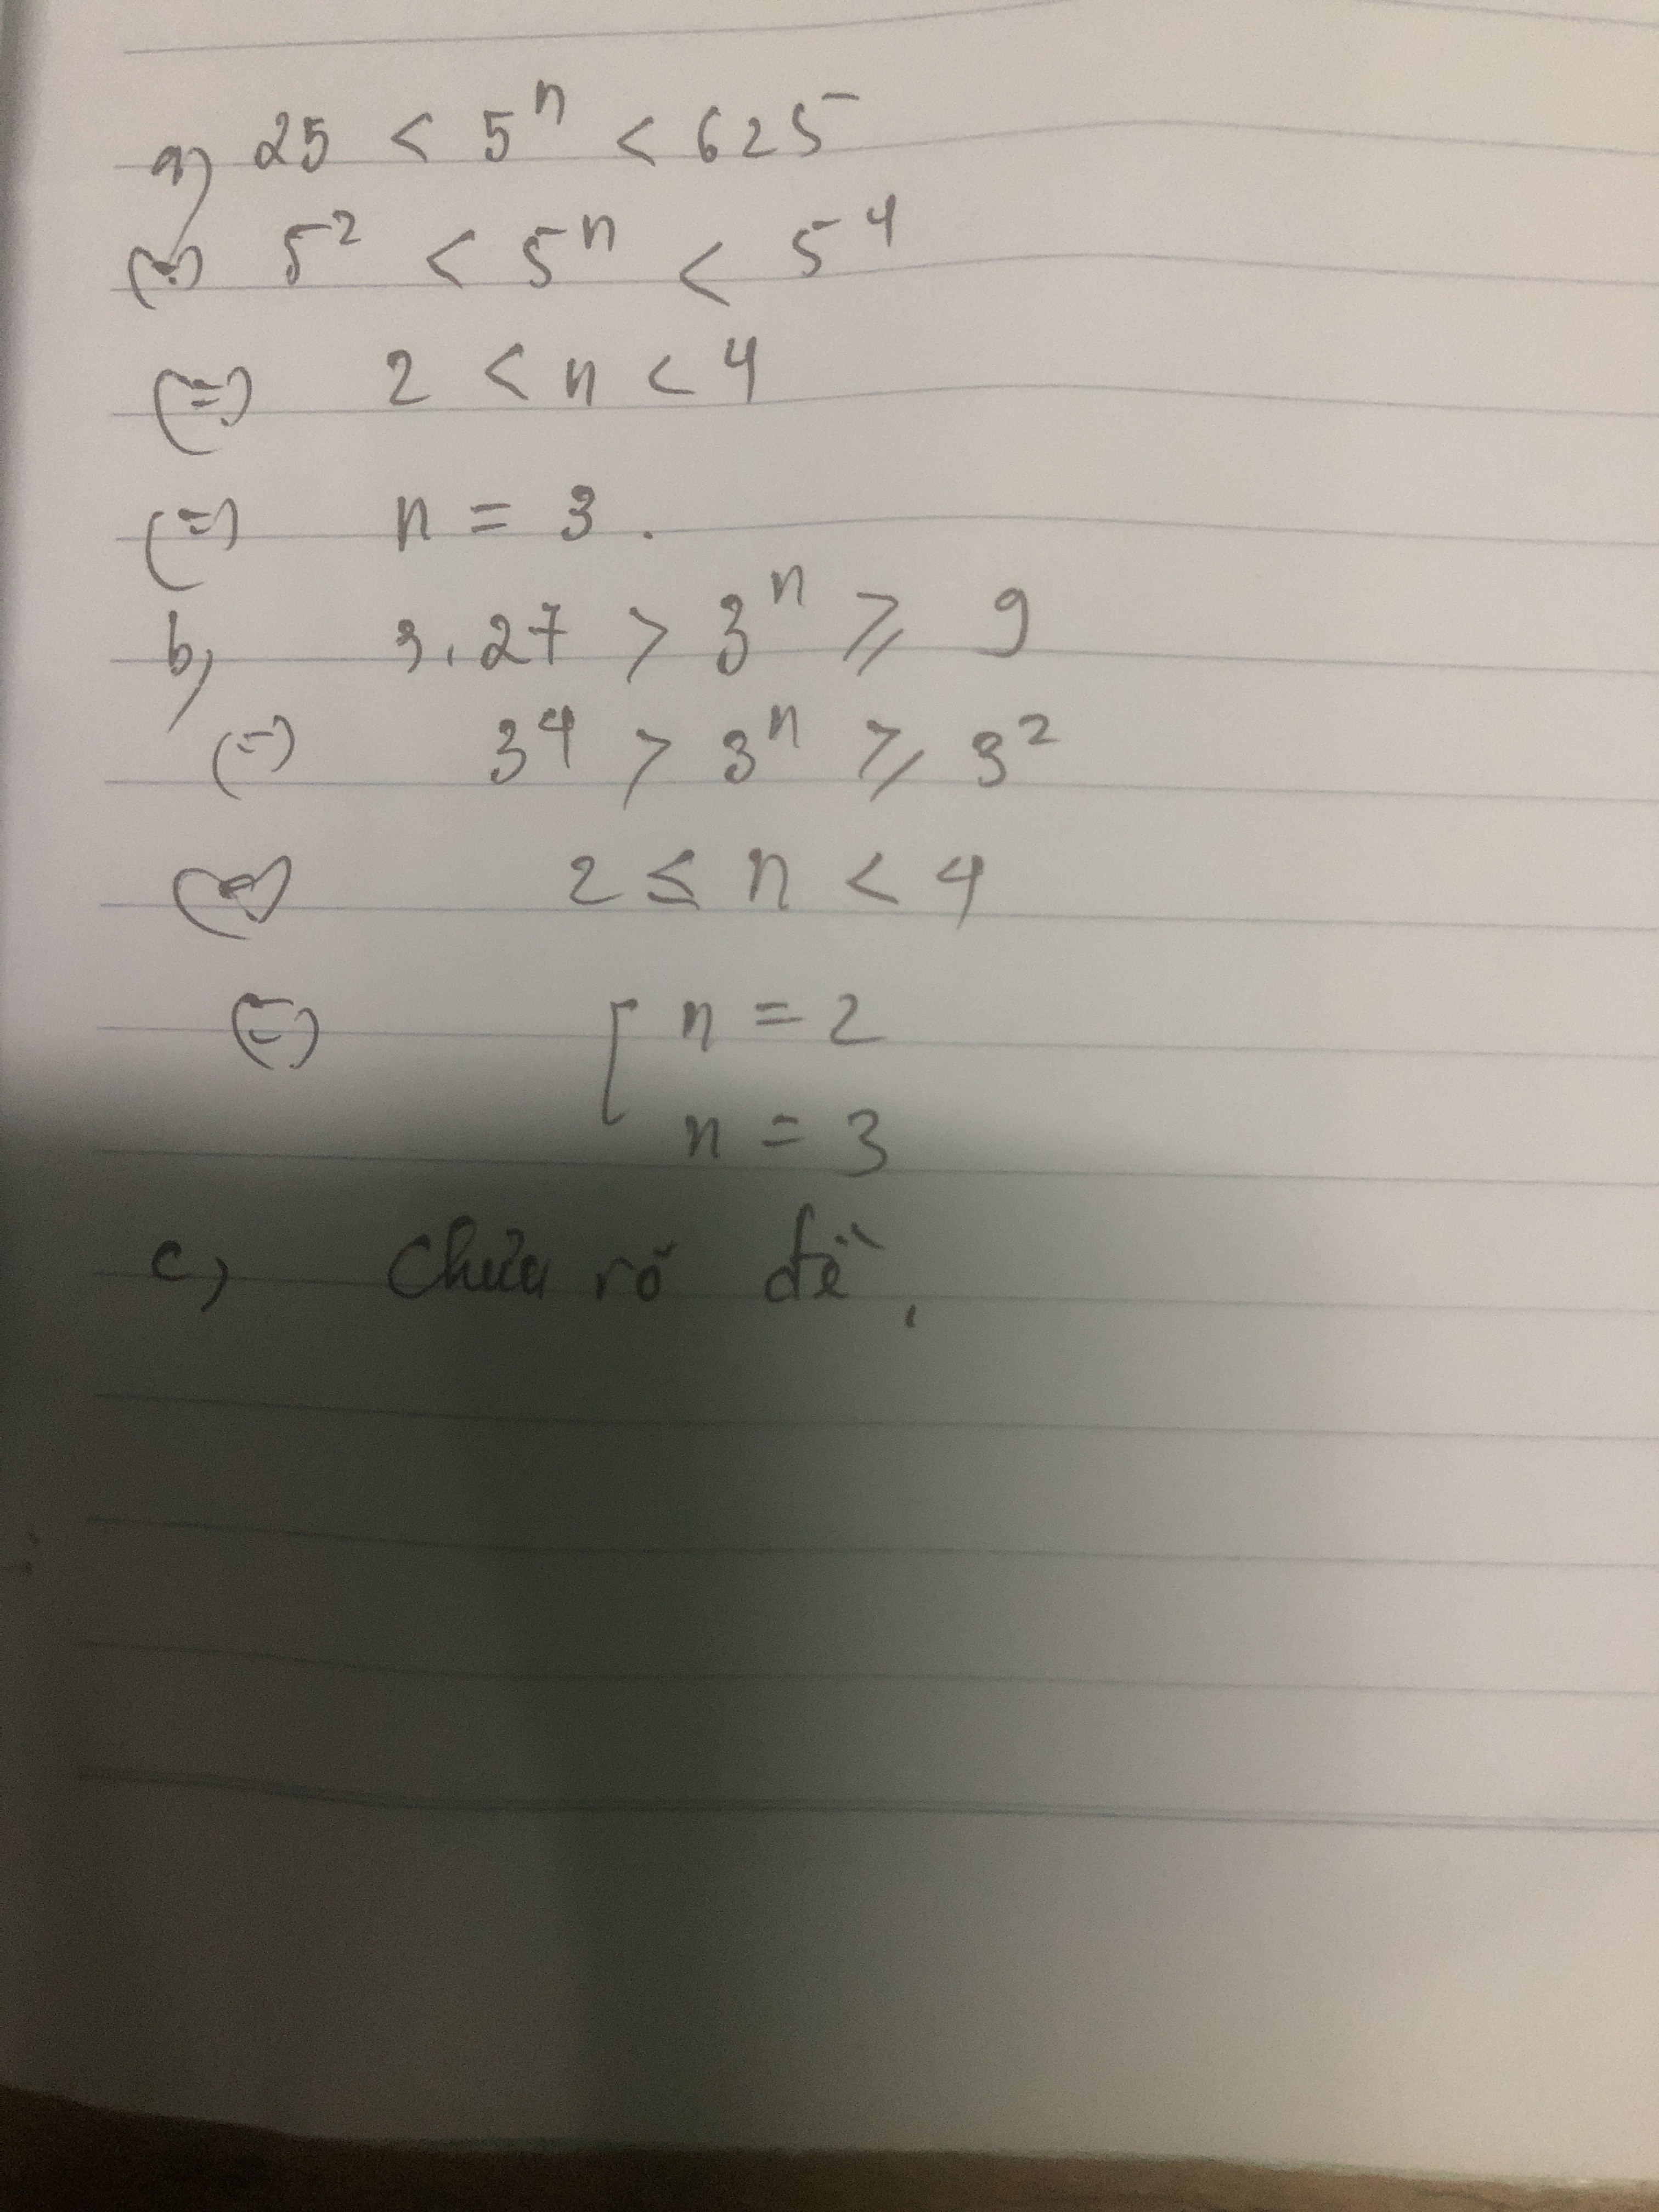 a) 25 < 5ⁿ < 625
(=) 5² < 5ⁿ < 5⁴
(=) 2 < n < 4
(=) n = 3.
b) 3.27 > 3ⁿ ⩾ 9
(=) 3⁴ > 3ⁿ ⩾ 3²
(=) 2 ≤ n < 4
(=) [ n = 2
n = 3
c) Chưa rõ đề.